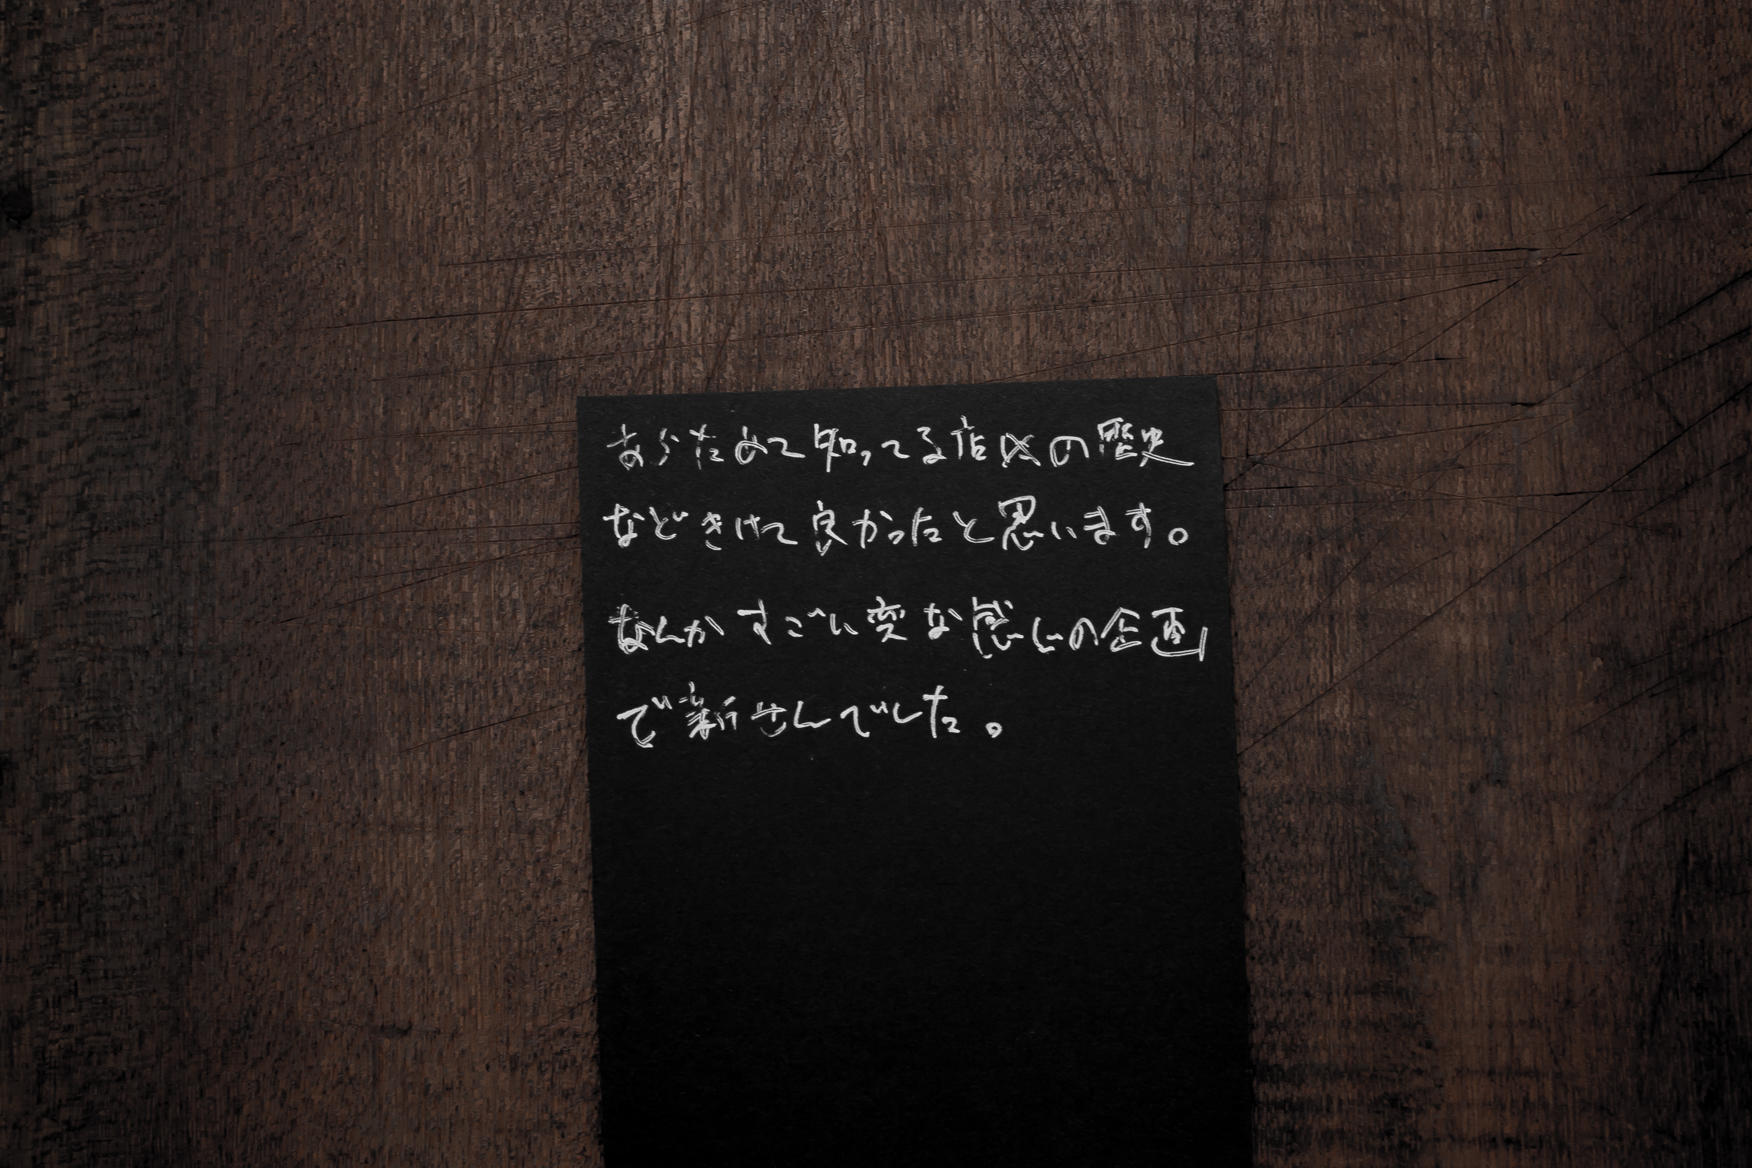 あらためて知ってる店〆の歴史
などきけて良かったと思います。
なんかすごい変な感じの企画
で新せんでした。